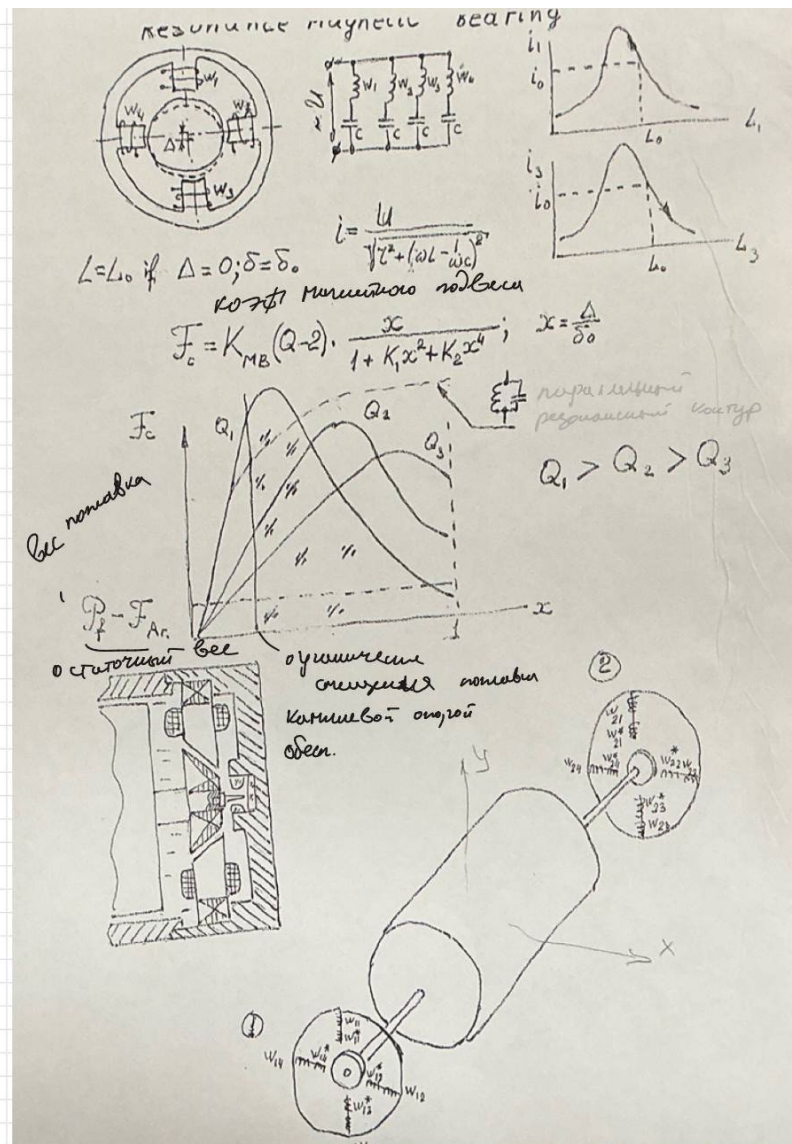 Resonance magnetic bearing
W₁
W₄
W₂
Δ
W₃
~U
W₁ W₂ W₃ W₄
C C C C
i₁
i₀
L₀
L₁
i₃
i₀
L₀
L₃
L=L₀ if Δ=0; δ=δ₀
i = U / √(r² + (ωL - 1/ωc)²)
коэф магнитного подвеса
F_c = K_MB (Q-2) · x / (1 + K₁x² + K₂x⁴) ; x = Δ/δ₀
F_c
Q₁
Q₂
Q₃
параллельный
резонансный контур
Q₁ > Q₂ > Q₃
вес поплавка
P_f - F_Ar.
x
1
остаточный вес
ограничение
смещения поплавка
камневой опорой
обесп.
②
W₂₁
W*₂₁
W₂₄ W*₂₄
W*₂₂ W₂₂
W*₂₃
W₂₃
y
x
①
W₁₁
W*₁₁
W₁₄ W*₁₄
W*₁₂ W₁₂
W*₁₃